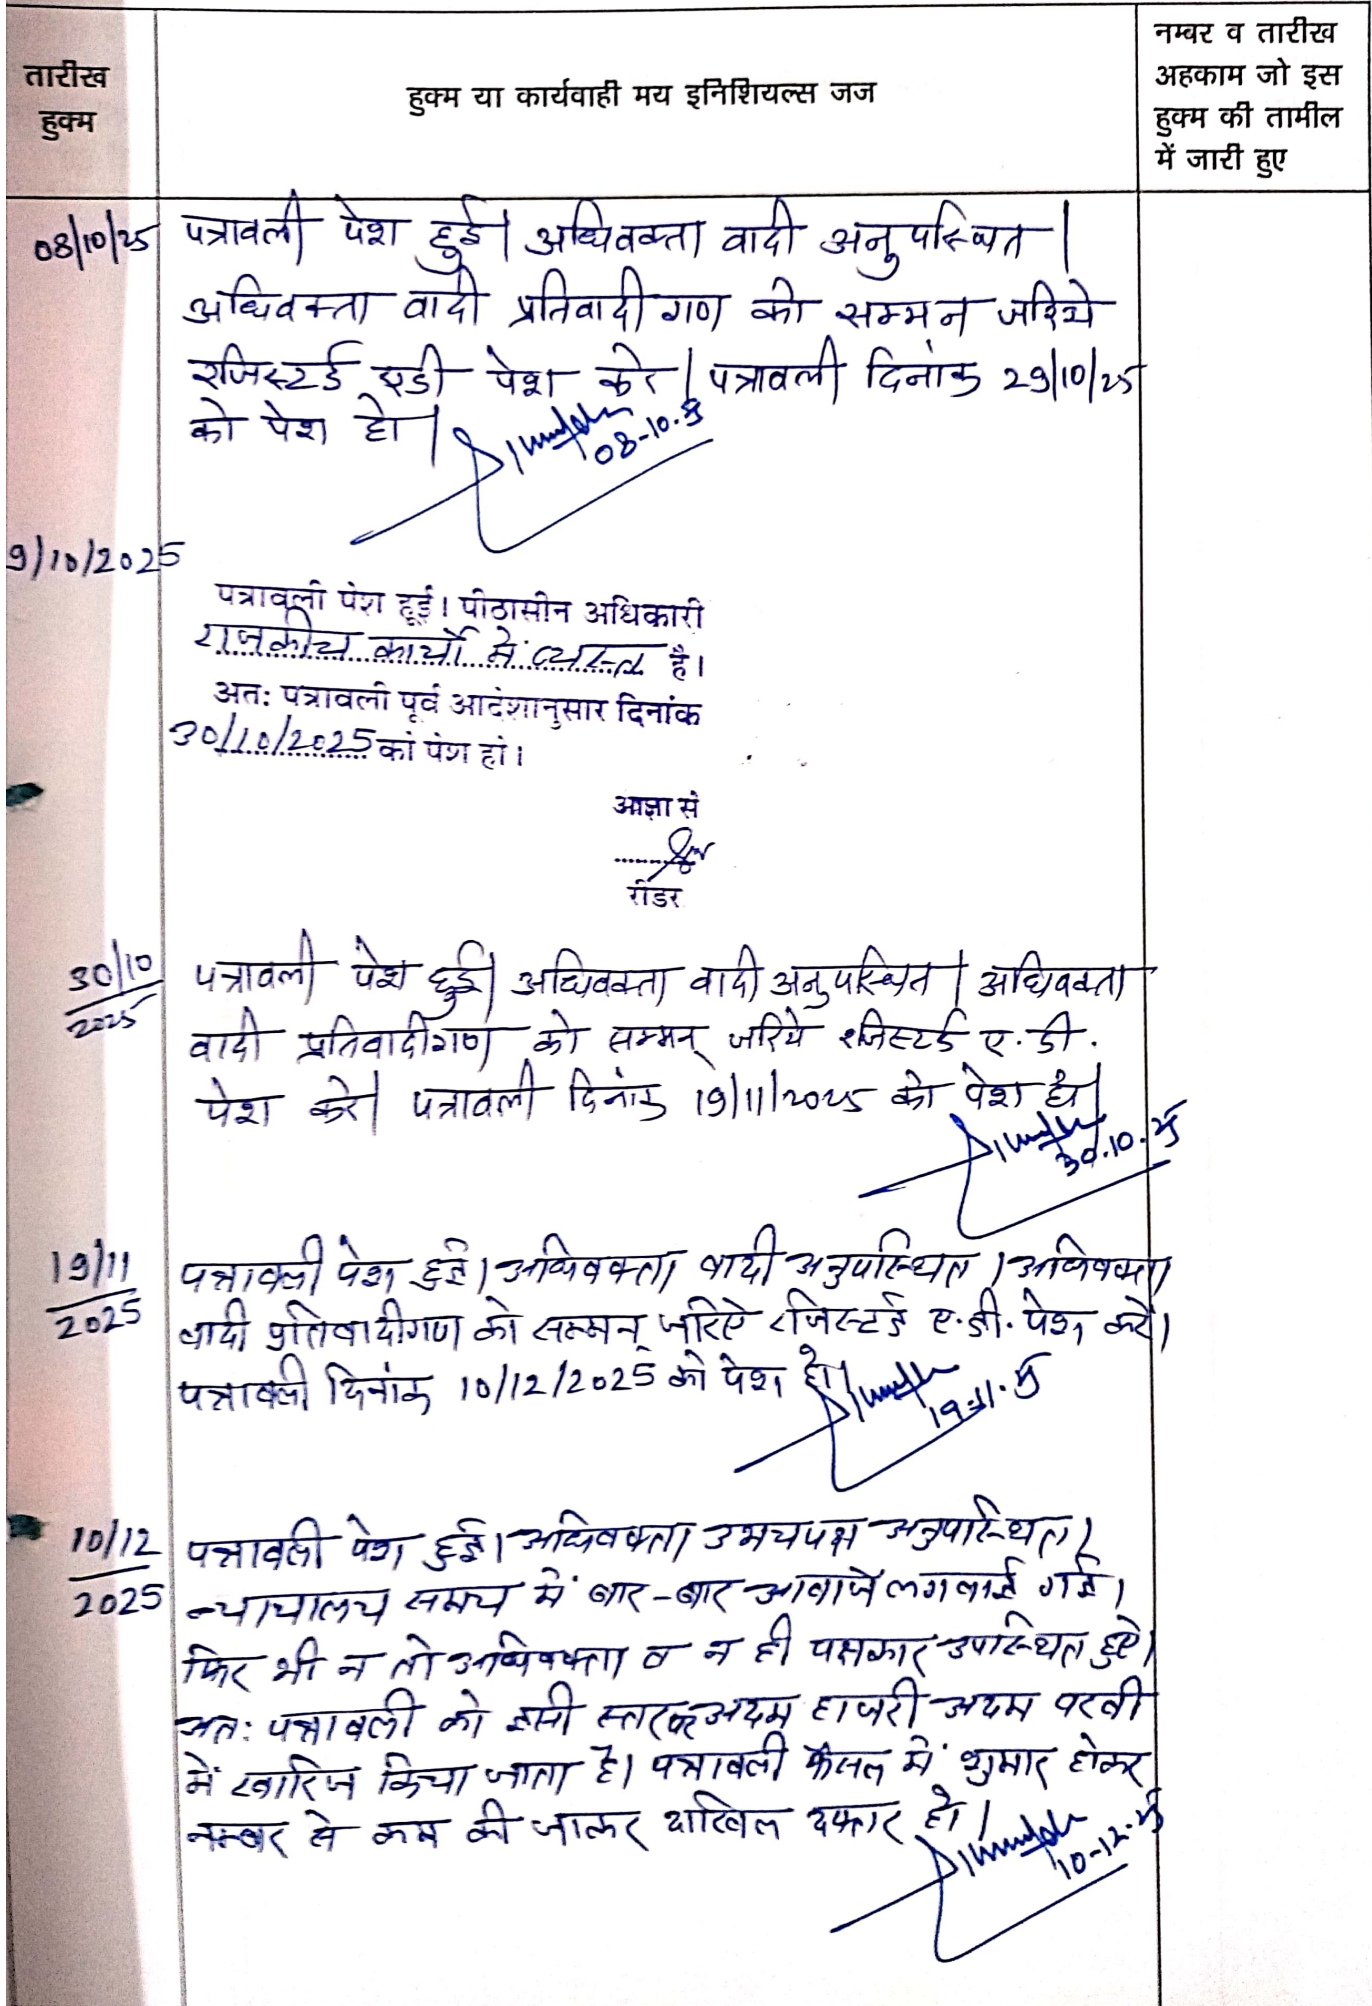 तारीख
हुक्म
हुक्म या कार्यवाही मय इनिशियल्स जज
नम्बर व तारीख
अहकाम जो इस
हुक्म की तामील
में जारी हुए
08/10/25 पत्रावली पेश हुई। अधिवक्ता वादी अनुपस्थित।
अधिवक्ता वादी प्रतिवादीगण को सम्मन जरिये
रजिस्टर्ड एडी पेश करे। पत्रावली दिनांक 29/10/25
को पेश हो।
08-10-25
9/10/2025
पत्रावली पेश हुई। पीठासीन अधिकारी
राजकीय कार्यो में व्यस्त है।
अतः पत्रावली पूर्व आदेशानुसार दिनांक
30/10/2025 को पेश हो।
आज्ञा से
रीडर
30/10 पत्रावली पेश हुई। अधिवक्ता वादी अनुपस्थित। अधिवक्ता
2025 वादी प्रतिवादीगण को सम्मन् जरिये रजिस्टर्ड ए.डी.
पेश करे। पत्रावली दिनांक 19/11/2025 को पेश हो।
30.10.25
19/11 पत्रावली पेश हुई। अधिवक्ता वादी अनुपस्थित। अधिवक्ता
2025 वादी प्रतिवादीगण को सम्मन् जरिऐ रजिस्टर्ड ए.डी. पेश करे।
पत्रावली दिनांक 10/12/2025 को पेश हो।
19.11.25
10/12 पत्रावली पेश हुई। अधिवक्ता उभयपक्ष अनुपस्थित।
2025 न्यायालय समय में बार-बार आवाजे लगवाई गई।
फिर भी न तो अधिवक्ता व न ही पक्षकार उपस्थित हुऐ।
अतः पत्रावली को इसी स्तर पर अदम हाजरी अदम परवी
में खारिज किया जाता है। पत्रावली फैसल में शुमार होकर
नम्बर से कम की जाकर दाखिल दफ्तर हो।
10-12-25